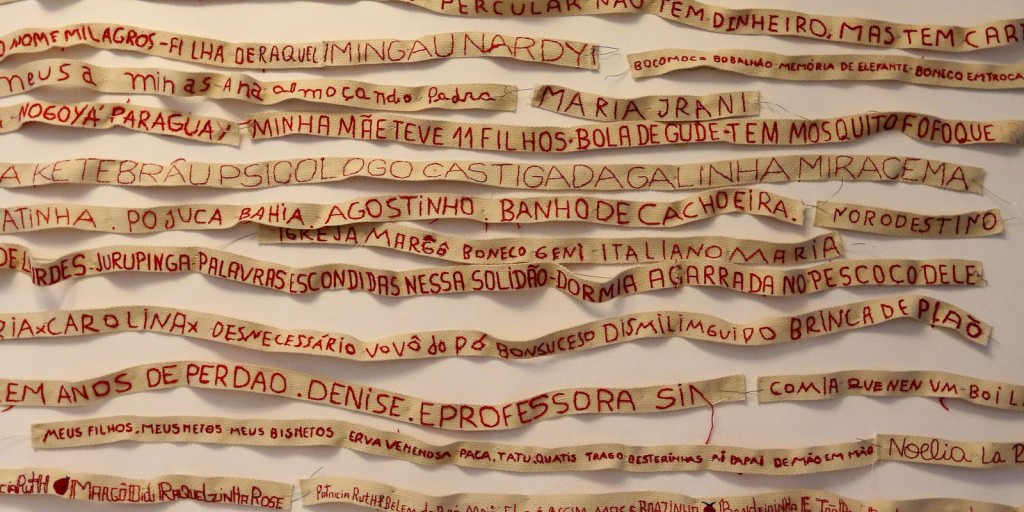 PERCULAR NÃO TEM DINHEIRO, MAS TEM CAR
O NOME MILAGROS-FILHA DE RAQUEL MINGAU NARDY
BOCOMOCO BOBALHÃO-MEMÓRIA DE ELEFANTE-BONECO EM TROCA
meus a minas-Ana almoçando Pedra
MARIA IRANI
NOGOYÁ PARAGUAY
MINHA MÃE TEVE 11 FILHOS-BOLA DE GUDE-TEM MOSQUITO FOFOQUE
A KETEBRÂU PSICOLOGO CASTIGADA GALINHA MIRACEMA
ATINHA. POJUCA BAHIA. AGOSTINHO. BANHO DE CACHOEIRA.
NORODESTINO
IGREJA MARGÔ BONECO GENI ITALIANO MARIA
DE LURDES-JURUPINGA-PALAVRAS ESCONDIDAS NESSA SOLIDÃO-DORMIA AGARRADA NO PESCOCO DELE-
RIAxCAROLINAx DESNECESSÁRIO VOVÔ do Pé BONSUCESO DISMILIMGUIDO BRINCA DE PIAÕ
EM ANOS DE PERDAO. DENISE. E PROFESSORA SIN
COMIA QUE NEN UM-BOI L
MEUS FILHOS. MEUS NETOS MEUS BISNETOS ERVA VENENOSA PACA, TATU, QUATIS TRAGO BESTERINHAS PAPAI DE MÃO EM MÃO
Noelia La R
RUTH MARGÔ Didi RAQUELZINHA ROSE
Patricia RUTH Belem